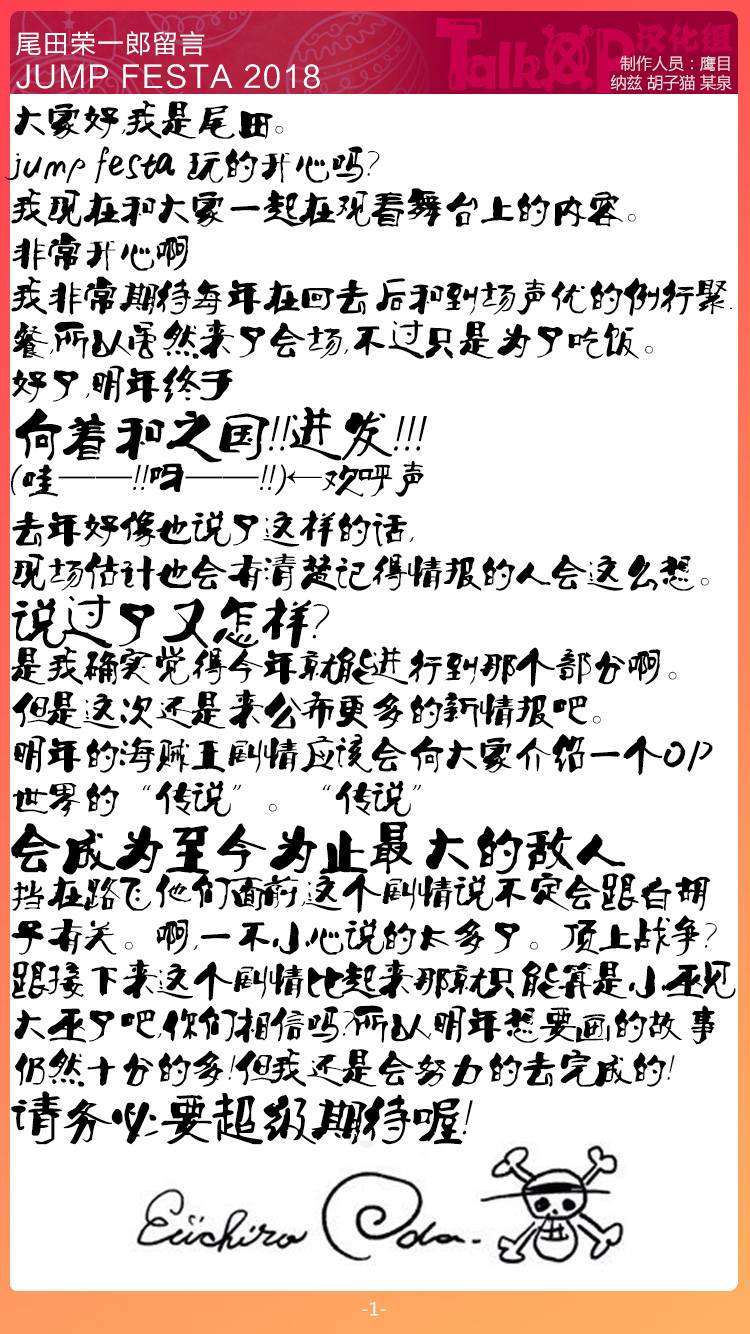 尾田荣一郎留言
JUMP FESTA 2018
TalkOP汉化组
制作人员：鹰目
纳兹 胡子猫 某泉
大家好,我是尾田。
jump festa 玩的开心吗?
我现在和大家一起在观看舞台上的内容。
非常开心啊
我非常期待每年在回去后和到场声优的例行聚
餐,所以虽然来了会场,不过只是为了吃饭。
好了,明年终于
向着和之国!!进发!!!
(哇———!!呀———!!)←欢呼声
去年好像也说了这样的话,
现场估计也会有清楚记得情报的人会这么想。
说过了又怎样?
是我确实觉得今年就能进行到那个部分啊。
但是这次还是来公布更多的新情报吧。
明年的海贼王剧情应该会向大家介绍一个OP
世界的“传说”。“传说”
会成为至今为止最大的敌人
挡在路飞他们面前,这个剧情说不定会跟白胡
子有关。啊,一不小心说的太多了。顶上战争?
跟接下来这个剧情比起来那就只能算是小巫见
大巫了吧,你们相信吗?所以明年想要画的故事
仍然十分的多!但我还是会努力的去完成的!
请务必要超级期待喔!
Eiichiro Oda
-1-